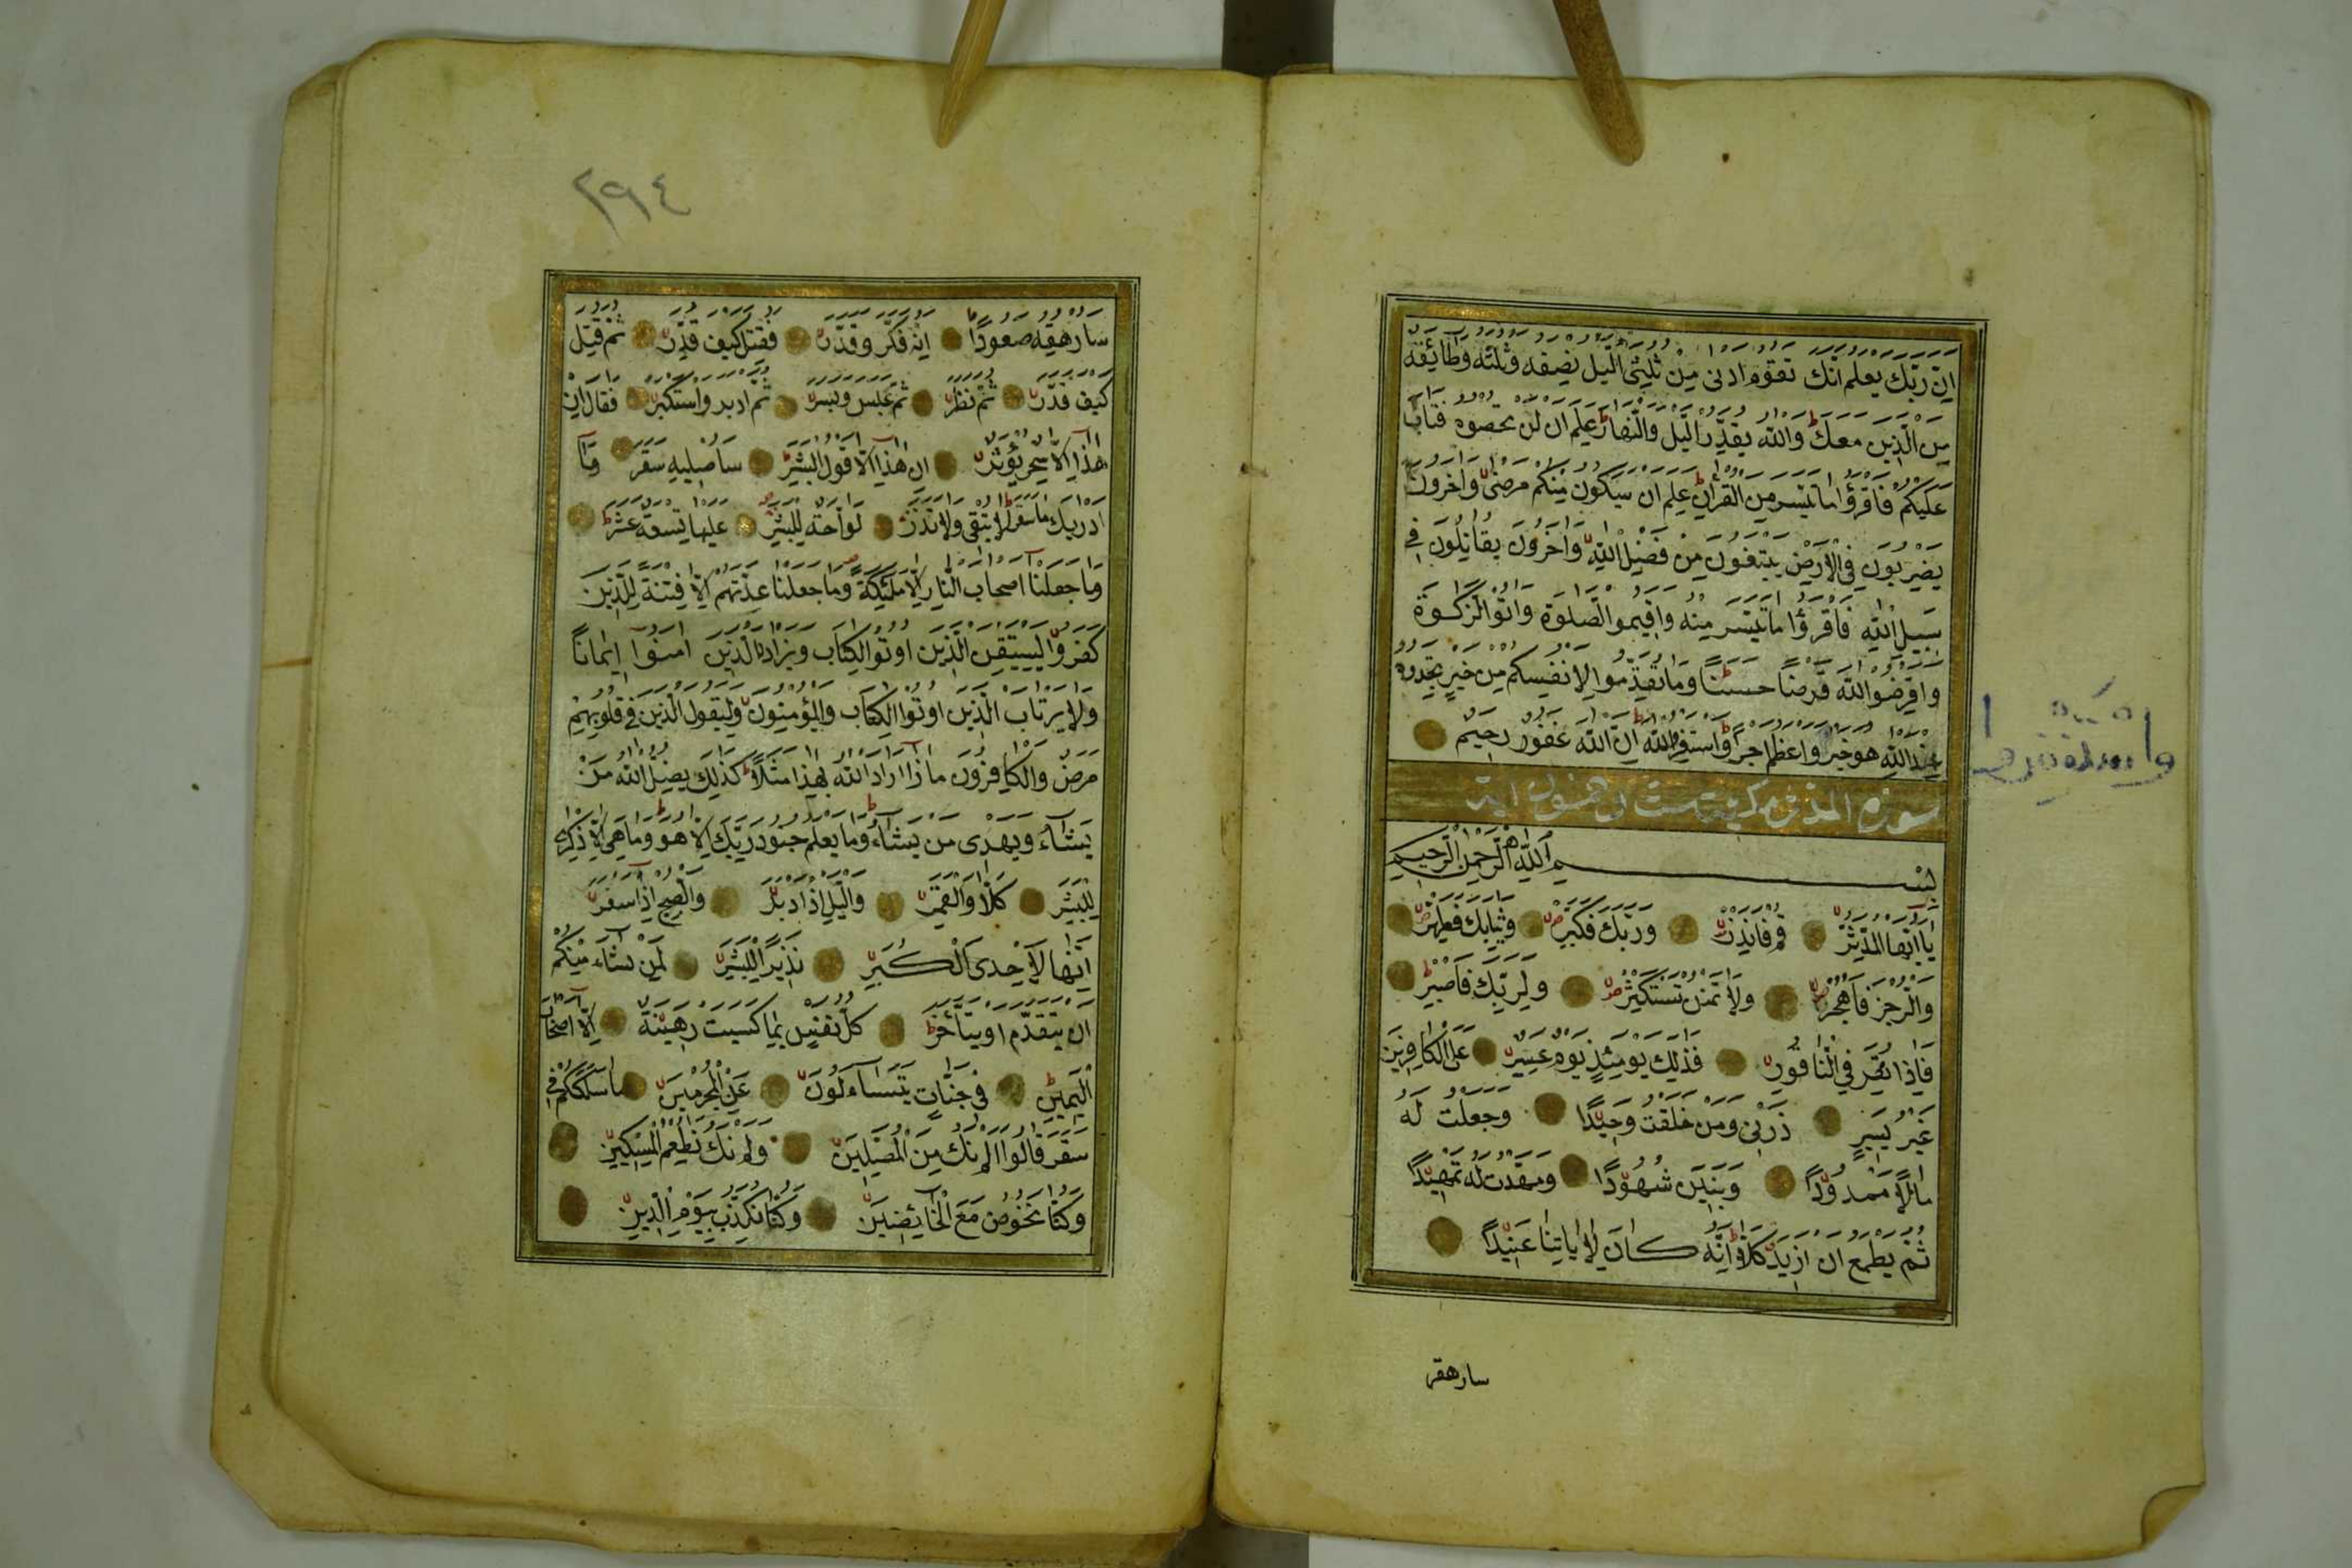 اِنَّ رَبَّكَ يَعْلَمُ اَنَّكَ تَقُومُ اَدْنٰى مِنْ ثُلُثَىِ الَّيْلِ وَنِصْفَهُ وَثُلُثَهُ وَطَائِفَةٌ
مِنَ الَّذِينَ مَعَكَ وَاللّٰهُ يُقَدِّرُ الَّيْلَ وَالنَّهَارَ عَلِمَ اَنْ لَنْ تُحْصُوهُ فَتَابَ
عَلَيْكُمْ فَاقْرَؤُا مَا تَيَسَّرَ مِنَ الْقُرْاٰنِ عَلِمَ اَنْ سَيَكُونُ مِنْكُمْ مَرْضٰى وَاٰخَرُونَ
يَضْرِبُونَ فِى الْاَرْضِ يَبْتَغُونَ مِنْ فَضْلِ اللّٰهِ وَاٰخَرُونَ يُقَاتِلُونَ فِى
سَبِيلِ اللّٰهِ فَاقْرَؤُا مَا تَيَسَّرَ مِنْهُ وَاَقِيمُوا الصَّلٰوةَ وَاٰتُوا الزَّكٰوةَ
وَاَقْرِضُوا اللّٰهَ قَرْضًا حَسَنًا وَمَا تُقَدِّمُوا لِاَنْفُسِكُمْ مِنْ خَيْرٍ تَجِدُوهُ
عِنْدَ اللّٰهِ هُوَ خَيْرًا وَاَعْظَمَ اَجْرًا وَاسْتَغْفِرُوا اللّٰهَ اِنَّ اللّٰهَ غَفُورٌ رَحِيمٌ
واستغفروا
سورة المدثر مكية وهي ست وخمسون اية
بِسْمِ اللّٰهِ الرَّحْمٰنِ الرَّحِيمِ
يَا اَيُّهَا الْمُدَّثِّرُ قُمْ فَاَنْذِرْ وَرَبَّكَ فَكَبِّرْ وَثِيَابَكَ فَطَهِّرْ
وَالرُّجْزَ فَاهْجُرْ وَلَا تَمْنُنْ تَسْتَكْثِرُ وَلِرَبِّكَ فَاصْبِرْ
فَاِذَا نُقِرَ فِى النَّاقُورِ فَذٰلِكَ يَوْمَئِذٍ يَوْمٌ عَسِيرٌ عَلَى الْكَافِرِينَ
غَيْرُ يَسِيرٍ ذَرْنِى وَمَنْ خَلَقْتُ وَحِيدًا وَجَعَلْتُ لَهُ
مَالًا مَمْدُودًا وَبَنِينَ شُهُودًا وَمَهَّدْتُ لَهُ تَمْهِيدًا
ثُمَّ يَطْمَعُ اَنْ اَزِيدَ كَلَّا اِنَّهُ كَانَ لِاٰيَاتِنَا عَنِيدًا
سارهقه
٢٩٤
سَاُرْهِقُهُ صَعُودًا اِنَّهُ فَكَّرَ وَقَدَّرَ فَقُتِلَ كَيْفَ قَدَّرَ ثُمَّ قُتِلَ
كَيْفَ قَدَّرَ ثُمَّ نَظَرَ ثُمَّ عَبَسَ وَبَسَرَ ثُمَّ اَدْبَرَ وَاسْتَكْبَرَ فَقَالَ اِنْ
هٰذَا اِلَّا سِحْرٌ يُؤْثَرُ اِنْ هٰذَا اِلَّا قَوْلُ الْبَشَرِ سَاُصْلِيهِ سَقَرَ وَمَا
اَدْرٰيكَ مَا سَقَرُ لَا تُبْقِى وَلَا تَذَرُ لَوَّاحَةٌ لِلْبَشَرِ عَلَيْهَا تِسْعَةَ عَشَرَ
وَمَا جَعَلْنَا اَصْحَابَ النَّارِ اِلَّا مَلٰئِكَةً وَمَا جَعَلْنَا عِدَّتَهُمْ اِلَّا فِتْنَةً لِلَّذِينَ
كَفَرُوا لِيَسْتَيْقِنَ الَّذِينَ اُوتُوا الْكِتَابَ وَيَزْدَادَ الَّذِينَ اٰمَنُوا اِيمَانًا
وَلَا يَرْتَابَ الَّذِينَ اُوتُوا الْكِتَابَ وَالْمُؤْمِنُونَ وَلِيَقُولَ الَّذِينَ فِى قُلُوبِهِمْ
مَرَضٌ وَالْكَافِرُونَ مَاذَا اَرَادَ اللّٰهُ بِهٰذَا مَثَلًا كَذٰلِكَ يُضِلُّ اللّٰهُ مَنْ
يَشَاءُ وَيَهْدِى مَنْ يَشَاءُ وَمَا يَعْلَمُ جُنُودَ رَبِّكَ اِلَّا هُوَ وَمَا هِىَ اِلَّا ذِكْرٰى
لِلْبَشَرِ كَلَّا وَالْقَمَرِ وَالَّيْلِ اِذْ اَدْبَرَ وَالصُّبْحِ اِذَا اَسْفَرَ
اِنَّهَا لَاِحْدَى الْكُبَرِ نَذِيرًا لِلْبَشَرِ لِمَنْ شَاءَ مِنْكُمْ
اَنْ يَتَقَدَّمَ اَوْ يَتَاَخَّرَ كُلُّ نَفْسٍ بِمَا كَسَبَتْ رَهِينَةٌ اِلَّا اَصْحَابَ
الْيَمِينِ فِى جَنَّاتٍ يَتَسَاءَلُونَ عَنِ الْمُجْرِمِينَ مَا سَلَكَكُمْ فِى
سَقَرَ قَالُوا لَمْ نَكُ مِنَ الْمُصَلِّينَ وَلَمْ نَكُ نُطْعِمُ الْمِسْكِينَ
وَكُنَّا نَخُوضُ مَعَ الْخَائِضِينَ وَكُنَّا نُكَذِّبُ بِيَوْمِ الدِّينِ